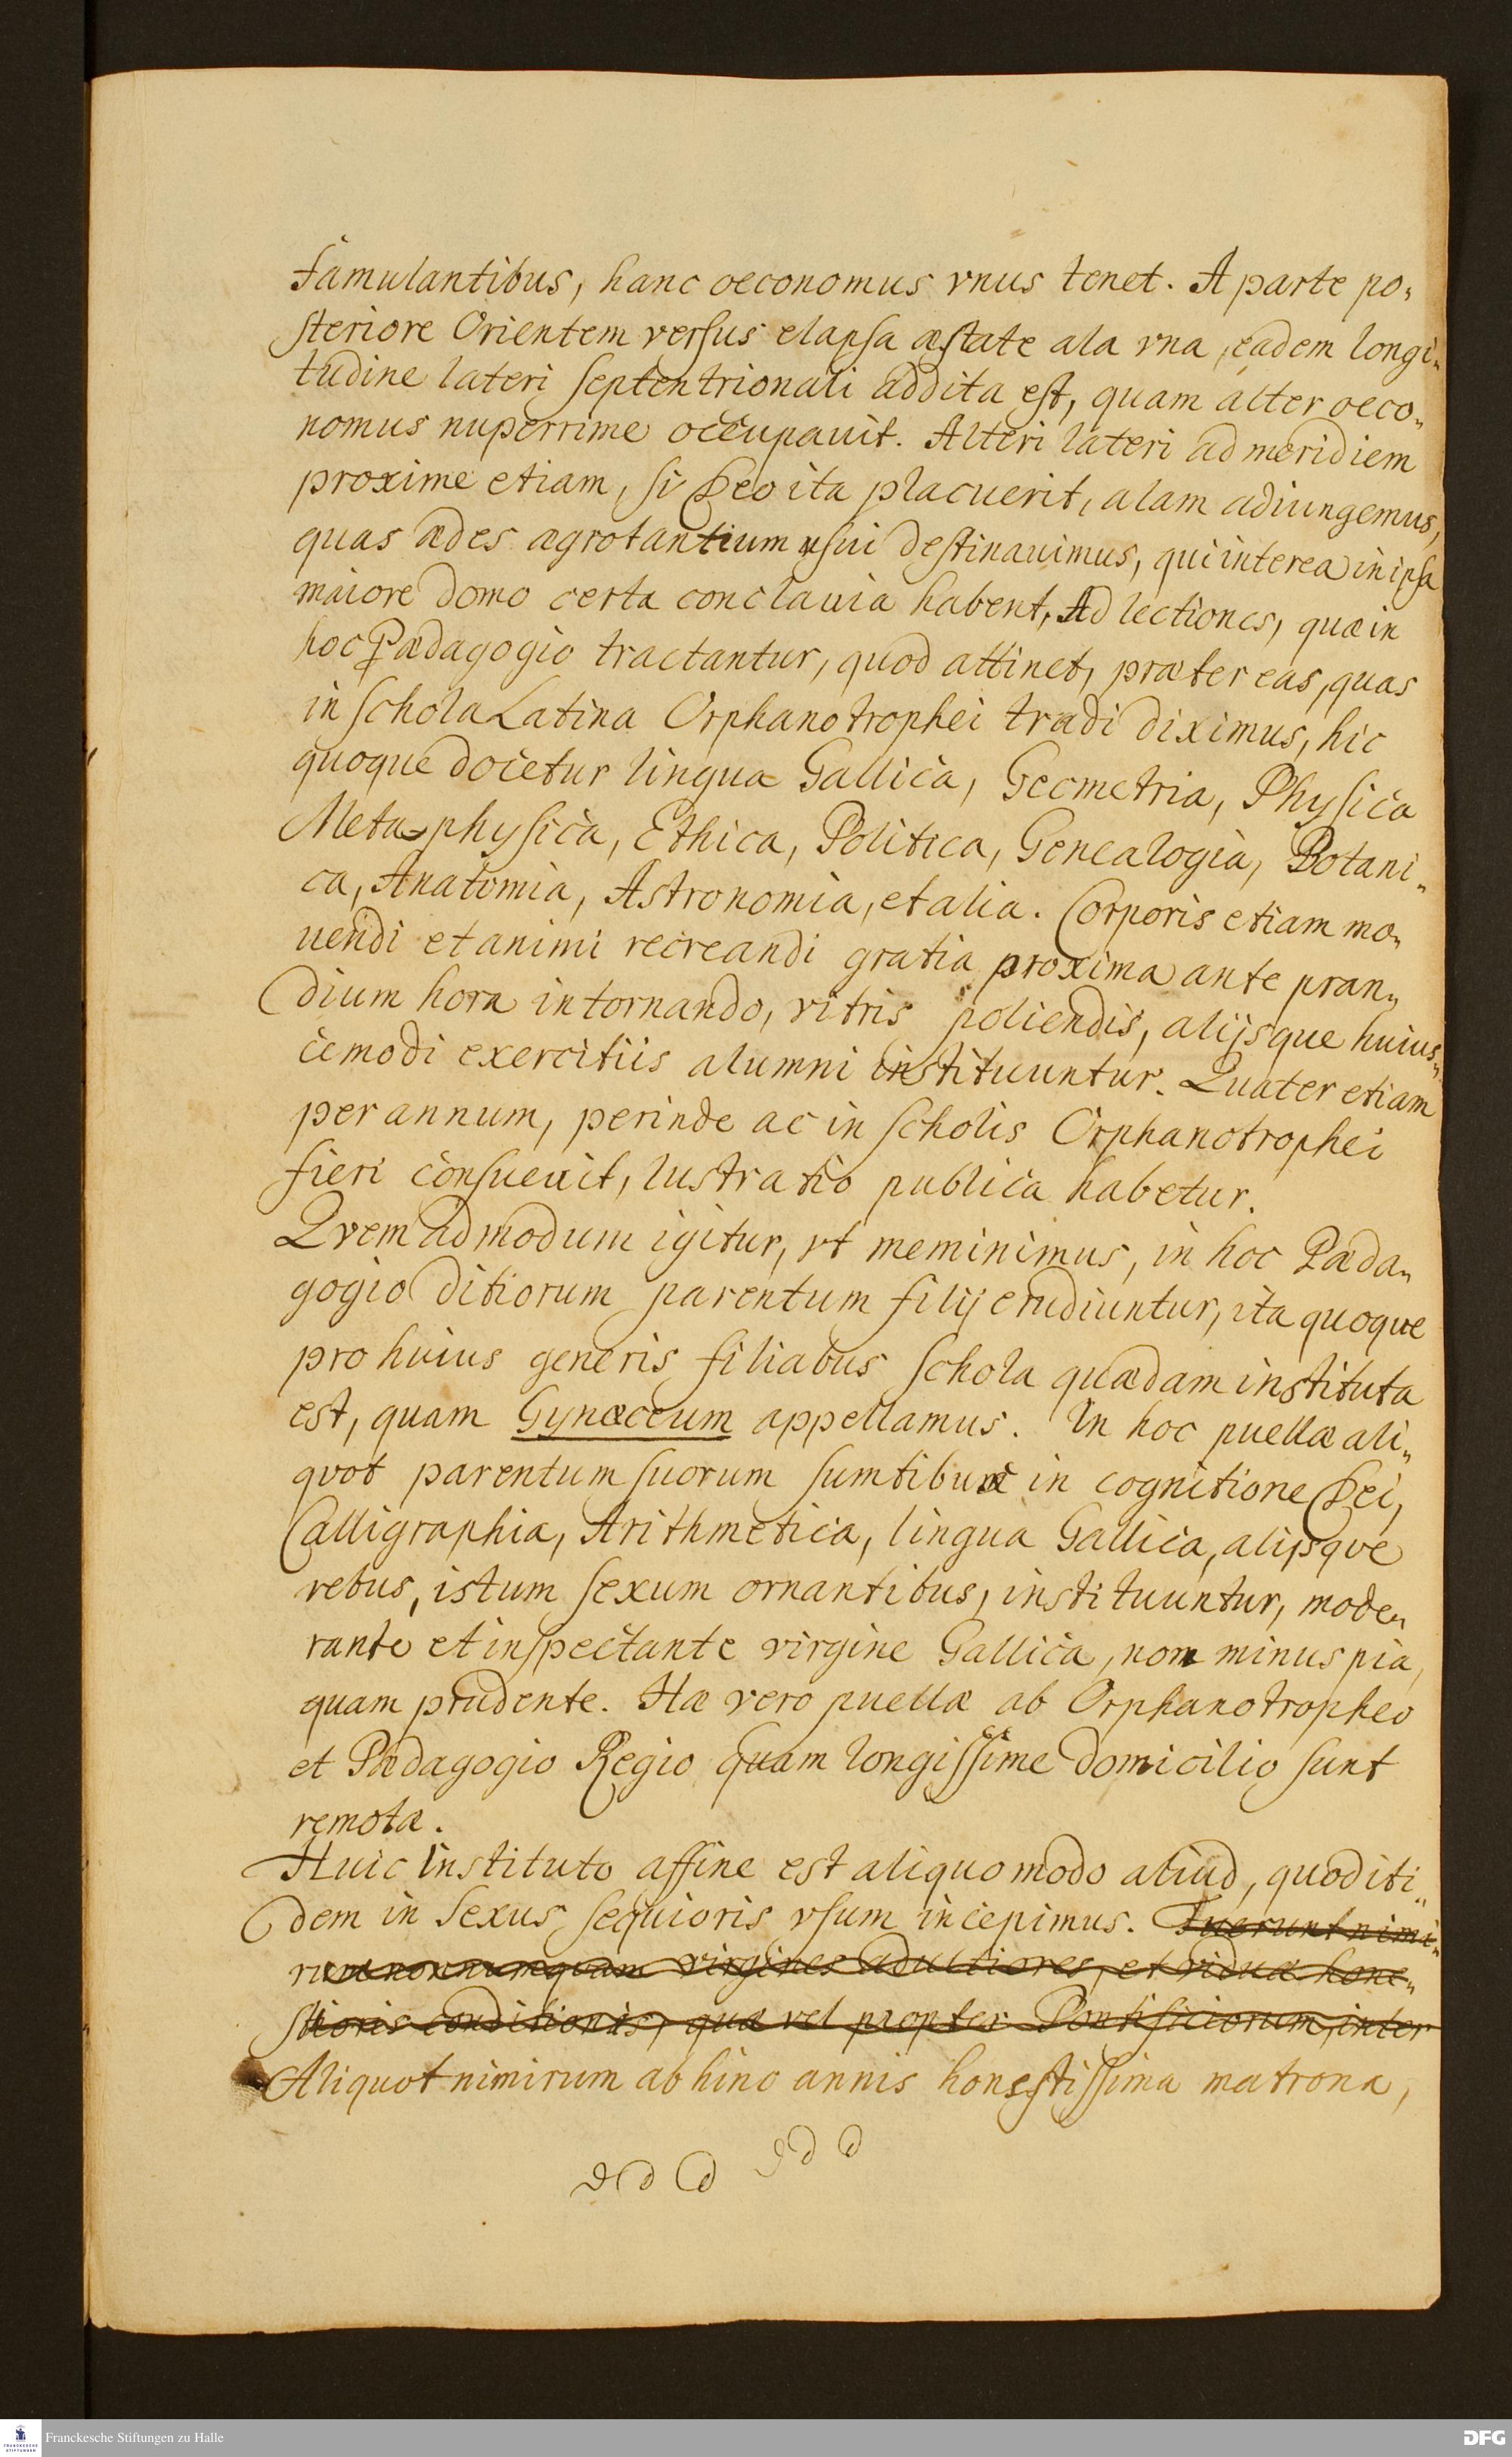 famulantibus, hanc oeconomus vnus tenet. A parte po„
steriore Orientem versus elapsa æstate ala vna, eadem longi„
tudine lateri septentrionali addita est, quam alter oeco„
nomus nuperrime occupauit. Alteri lateri ad meridiem
proxime etiam, si Deo ita placuerit, alam adiungemus,
quas ædes ægrotantium usui destinauimus, qui interea in ipsa
maiore domo certa conclauia habent, Ad lectiones, quæ in
hoc Pædagogio tractantur, quod attinet, præter eas, quas
in schola Latina Orphanotrophei tradi diximus, hic
quoque docetur lingua Gallica, Geometria, Physica
Meta-physica, Ethica, Politica, Genealogia, Botani„
ca, Anatomia, Astronomia, et alia. Corporis etiam mo„
uendi et animi recreandi gratia proxima ante pran„
dium hora in tornando, vitris poliendis, alijsque huius„
cemodi exercitiis alumni instituuntur. Quater etiam
per annum, perinde ac in scholis Orphanotrophei
fieri consueuit, lustratio publica habetur.
Qvemadmodum igitur, vt meminimus, in hoc Pæda„
gogio ditiorum parentum filij erudiuntur, ita quoque
pro huius generis filiabus schola quædam instituta
est, quam Gynæceum appellamus. In hoc puellæ ali„
qvot parentum suorum sumtibus in cognitione Dei,
Calligraphia, Arithmetica, lingua Gallica, alijsqve
rebus, istum sexum ornantibus, instituuntur, mode„
rante et inspectante virgine Gallica, non minus pia,
quam prudente. Hæ vero puellæ ab Orphanotropheo
et Pædagogio Regio quam longissime domicilio sunt
remotæ.
Huic instituto affine est aliquo modo aliud, quod iti„
dem in Sexus sequioris vsum incepimus. Fuerunt nimi„
rum nonnumquam virgines adultiores, et viduæ hone„
stioris conditionis, quæ vel propter Pontificiorum, inter
Aliquot nimirum abhinc annis honestissima matrona,